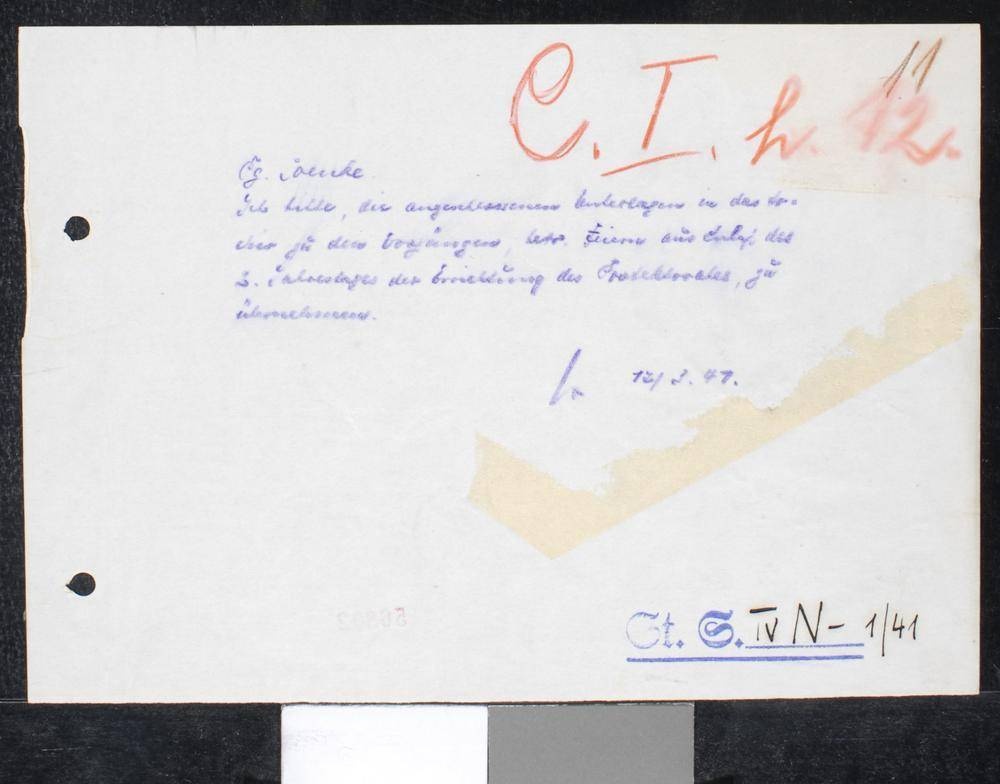 C. I. h. 12.
11
Pg.
Ich bitte, die angeschlossenen Unterlagen in das Ar-
chiv zu den Vorgängen, betr. Feiern aus Anlaß des
2. Jahrestages der Errichtung des Protektorates, zu
übernehmen.
12/3.41.
St. S. IV N - 1/41